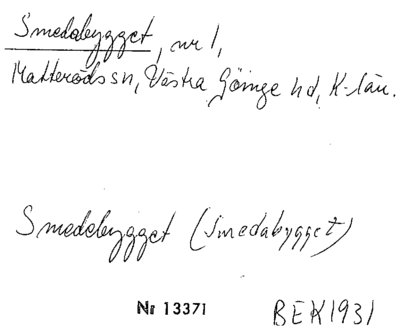 Smedabygget, nr 1,
Matteröds sn, Västra Göinge hd, K-län.
Smedebygget (Smedabygget)
Nr 13371 BEK 1931